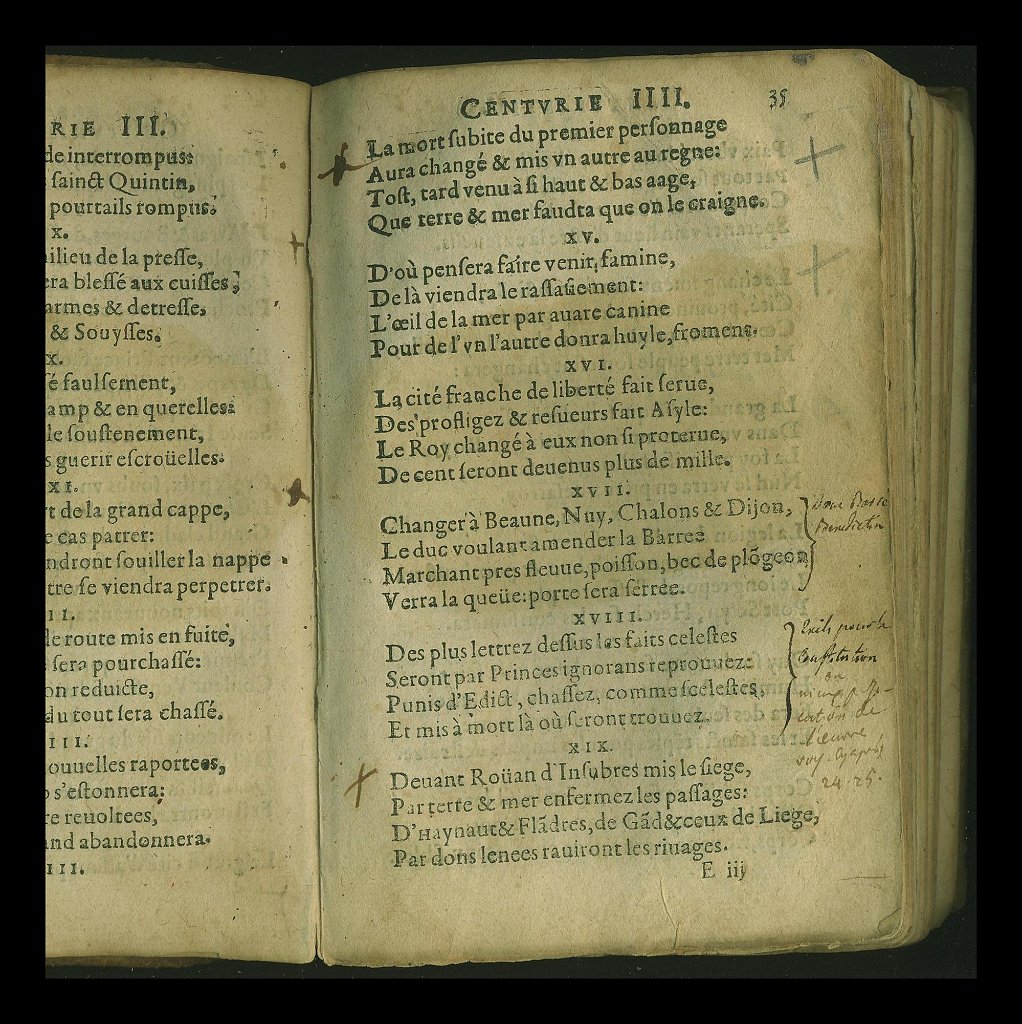 RIE III.
de interrompus:
sainct Quintin,
pourtails rompus.
X.
ilieu de la presse,
era blessé aux cuisses;
armes & detresse,
& Souysses.
X.
é faulsement,
amp & en querelles:
le soustenement,
s guerir escroüelles.
XI.
rt de la grand cappe,
e cas patrer:
ndront souiller la nappe
tre se viendra perpetrer.
II.
le route mis en fuite,
sera pourchassé:
on reduicte,
du tout sera chassé.
III.
ouuelles raportees,
s'estonnera:
re reuoltees,
and abandonnera.
III.
CENTVRIE IIII. 35
La mort subite du premier personnage
Aura changé & mis vn autre au regne:
Tost, tard venu à si haut & bas aage,
Que terre & mer faudta que on le craigne.
XV.
D'où pensera faire venir famine,
De là viendra le rassasiement:
L'œil de la mer par auare canine
Pour de l'vn l'autre donra huyle, froment.
XVI.
La cité franche de liberté fait serue,
Des profligez & resueurs fait Asyle:
Le Roy changé à eux non si proterue,
De cent seront deuenus plus de mille.
XVII.
Changer à Beaune, Nuy, Chalons & Dijon,
Le duc voulant amender la Barree
Marchant pres fleuue, poisson, bec de plõgeon
Verra la queüe: porte sera serree.
XVIII.
Des plus lettrez dessus les faits celestes
Seront par Princes ignorans reprouuez:
Punis d'Edict, chassez, comme scelestes,
Et mis à mort là où seront trouuez.
XIX.
Deuant Roüan d'Insubres mis le siege,
Par terre & mer enfermez les passages:
D'Haynaut & Flãdres, de Gãd & ceux de Liege,
Par dons lenees rauiront les riuages.
E iij
24. 25.